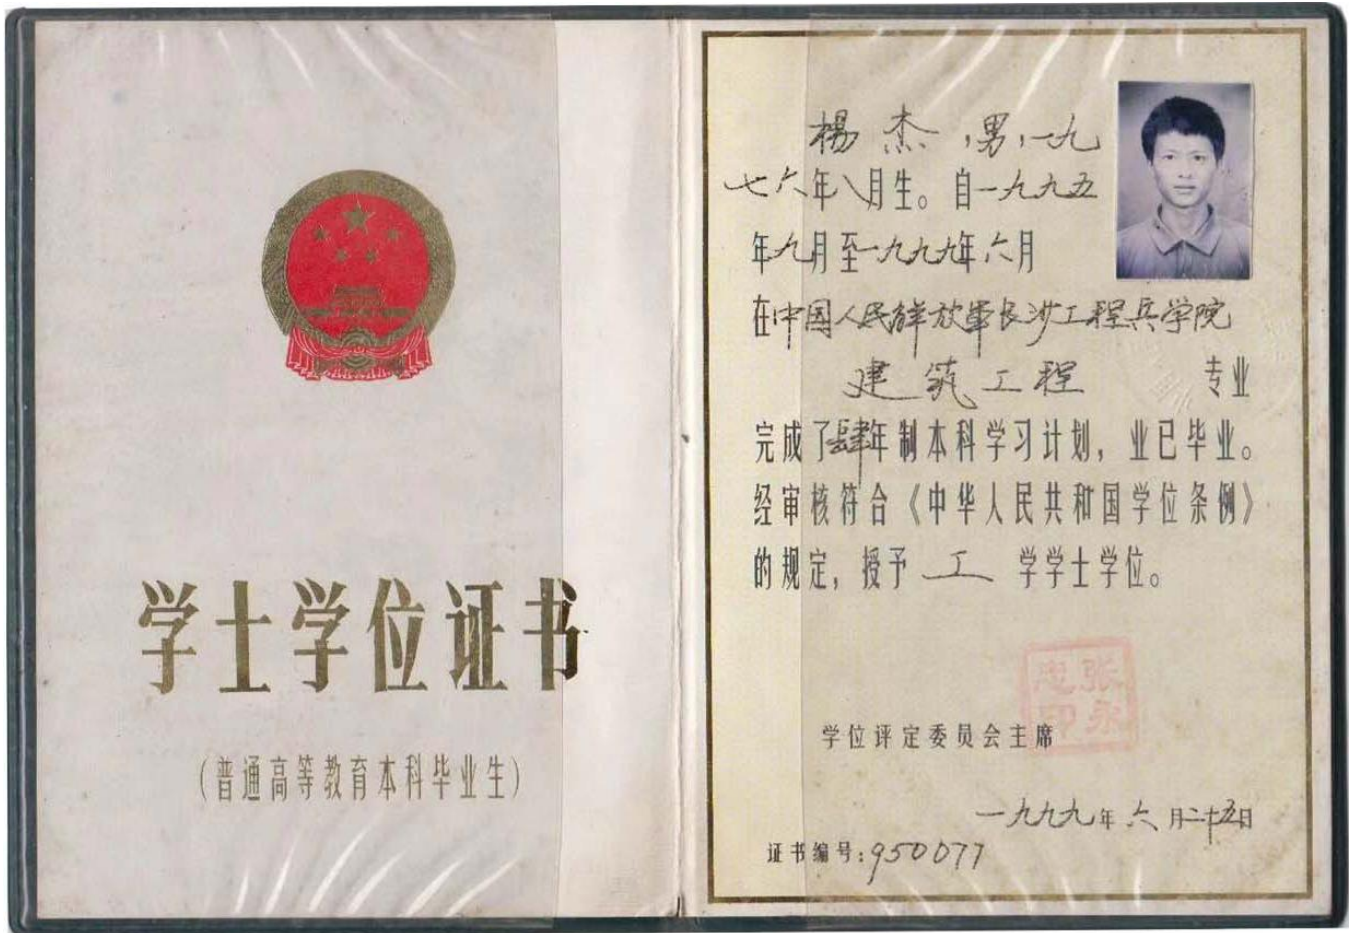 学士学位证书
(普通高等教育本科毕业生)
楊杰,男,一九
七六年八月生。自一九九五
年九月至一九九九年六月
在中国人民解放军长沙工程兵学院
建筑工程 专业
完成了肆年制本科学习计划,业已毕业。
经审核符合《中华人民共和国学位条例》
的规定,授予 工 学学士学位。
张永忠印
学位评定委员会主席
一九九九年六月二十五日
证书编号:950077